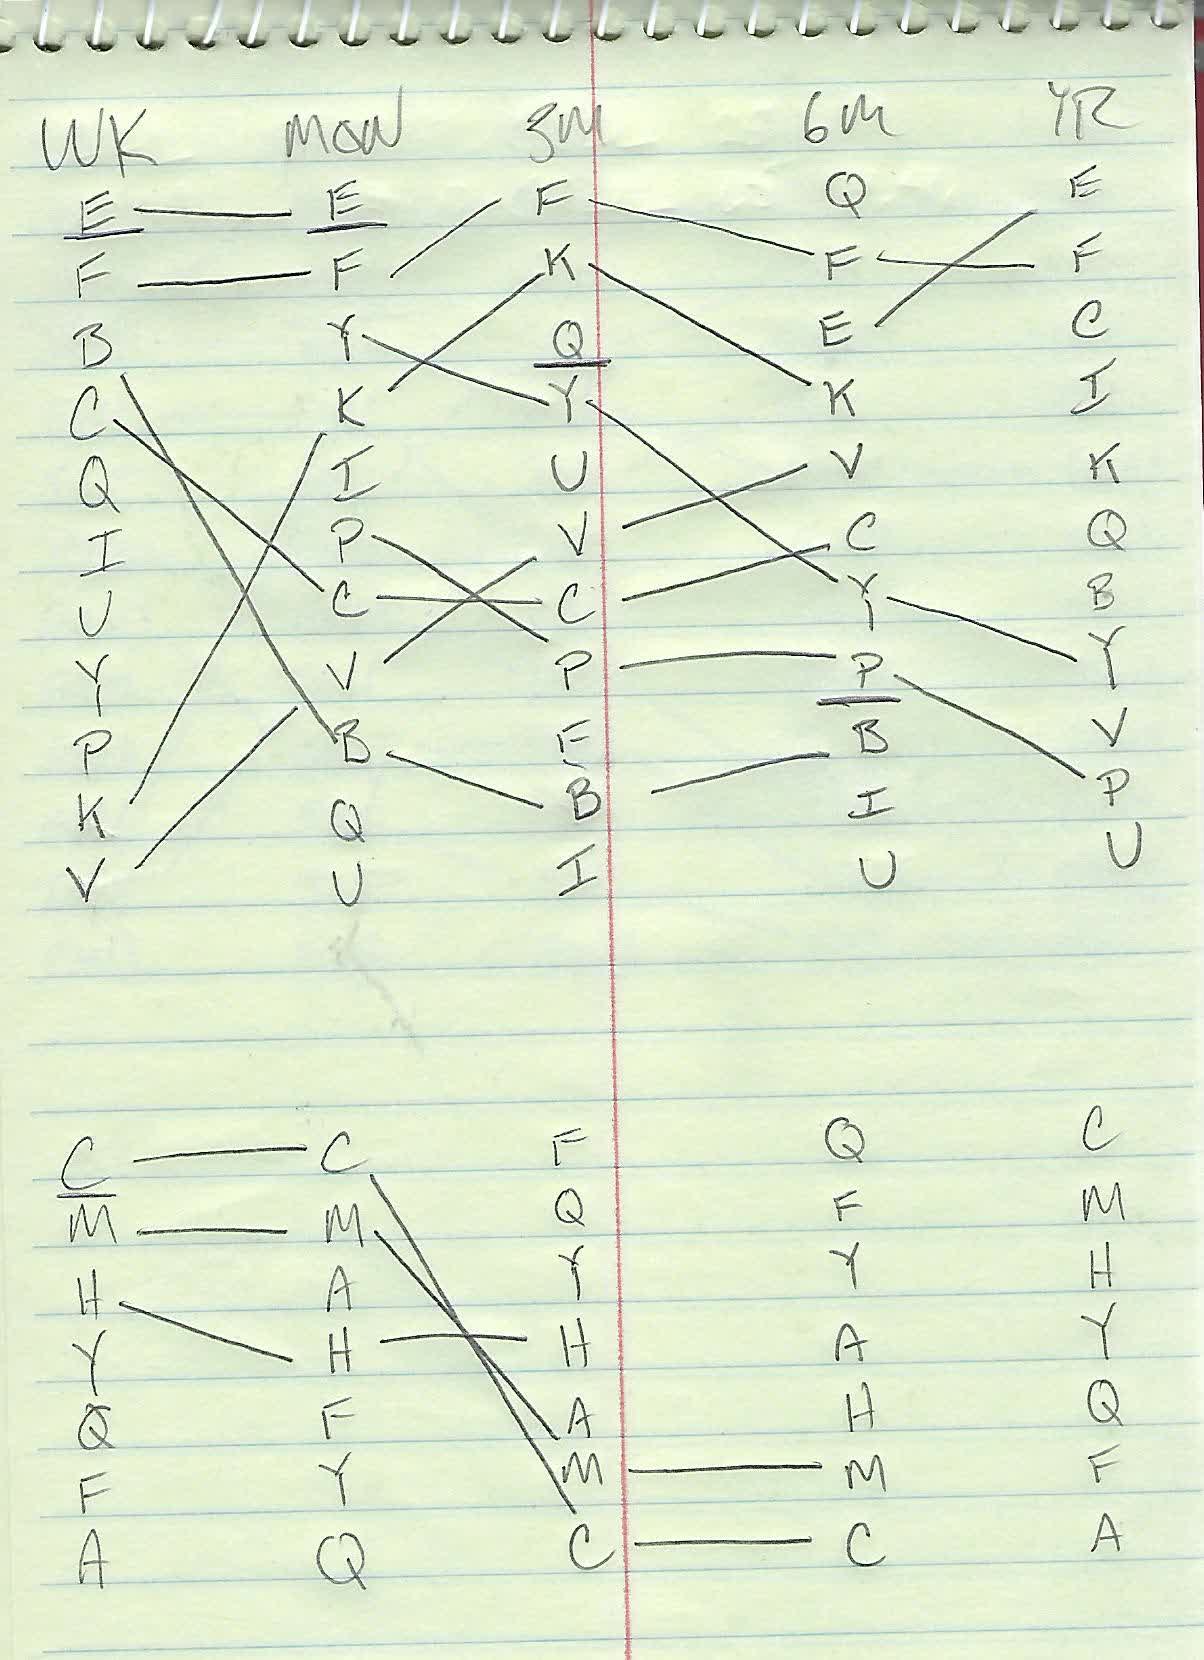 WK MON 3M 6M YR
E E F Q E
F F K F F
B Y Q E C
C K Y K I
Q I U V K
I P V C Q
U C C Y B
Y V P P Y
P B E B V
K Q B I P
V U I U U
C C F Q C
M M Q F M
H A Y Y H
Y H H A Y
Q F A H Q
F Y M M F
A Q C C A